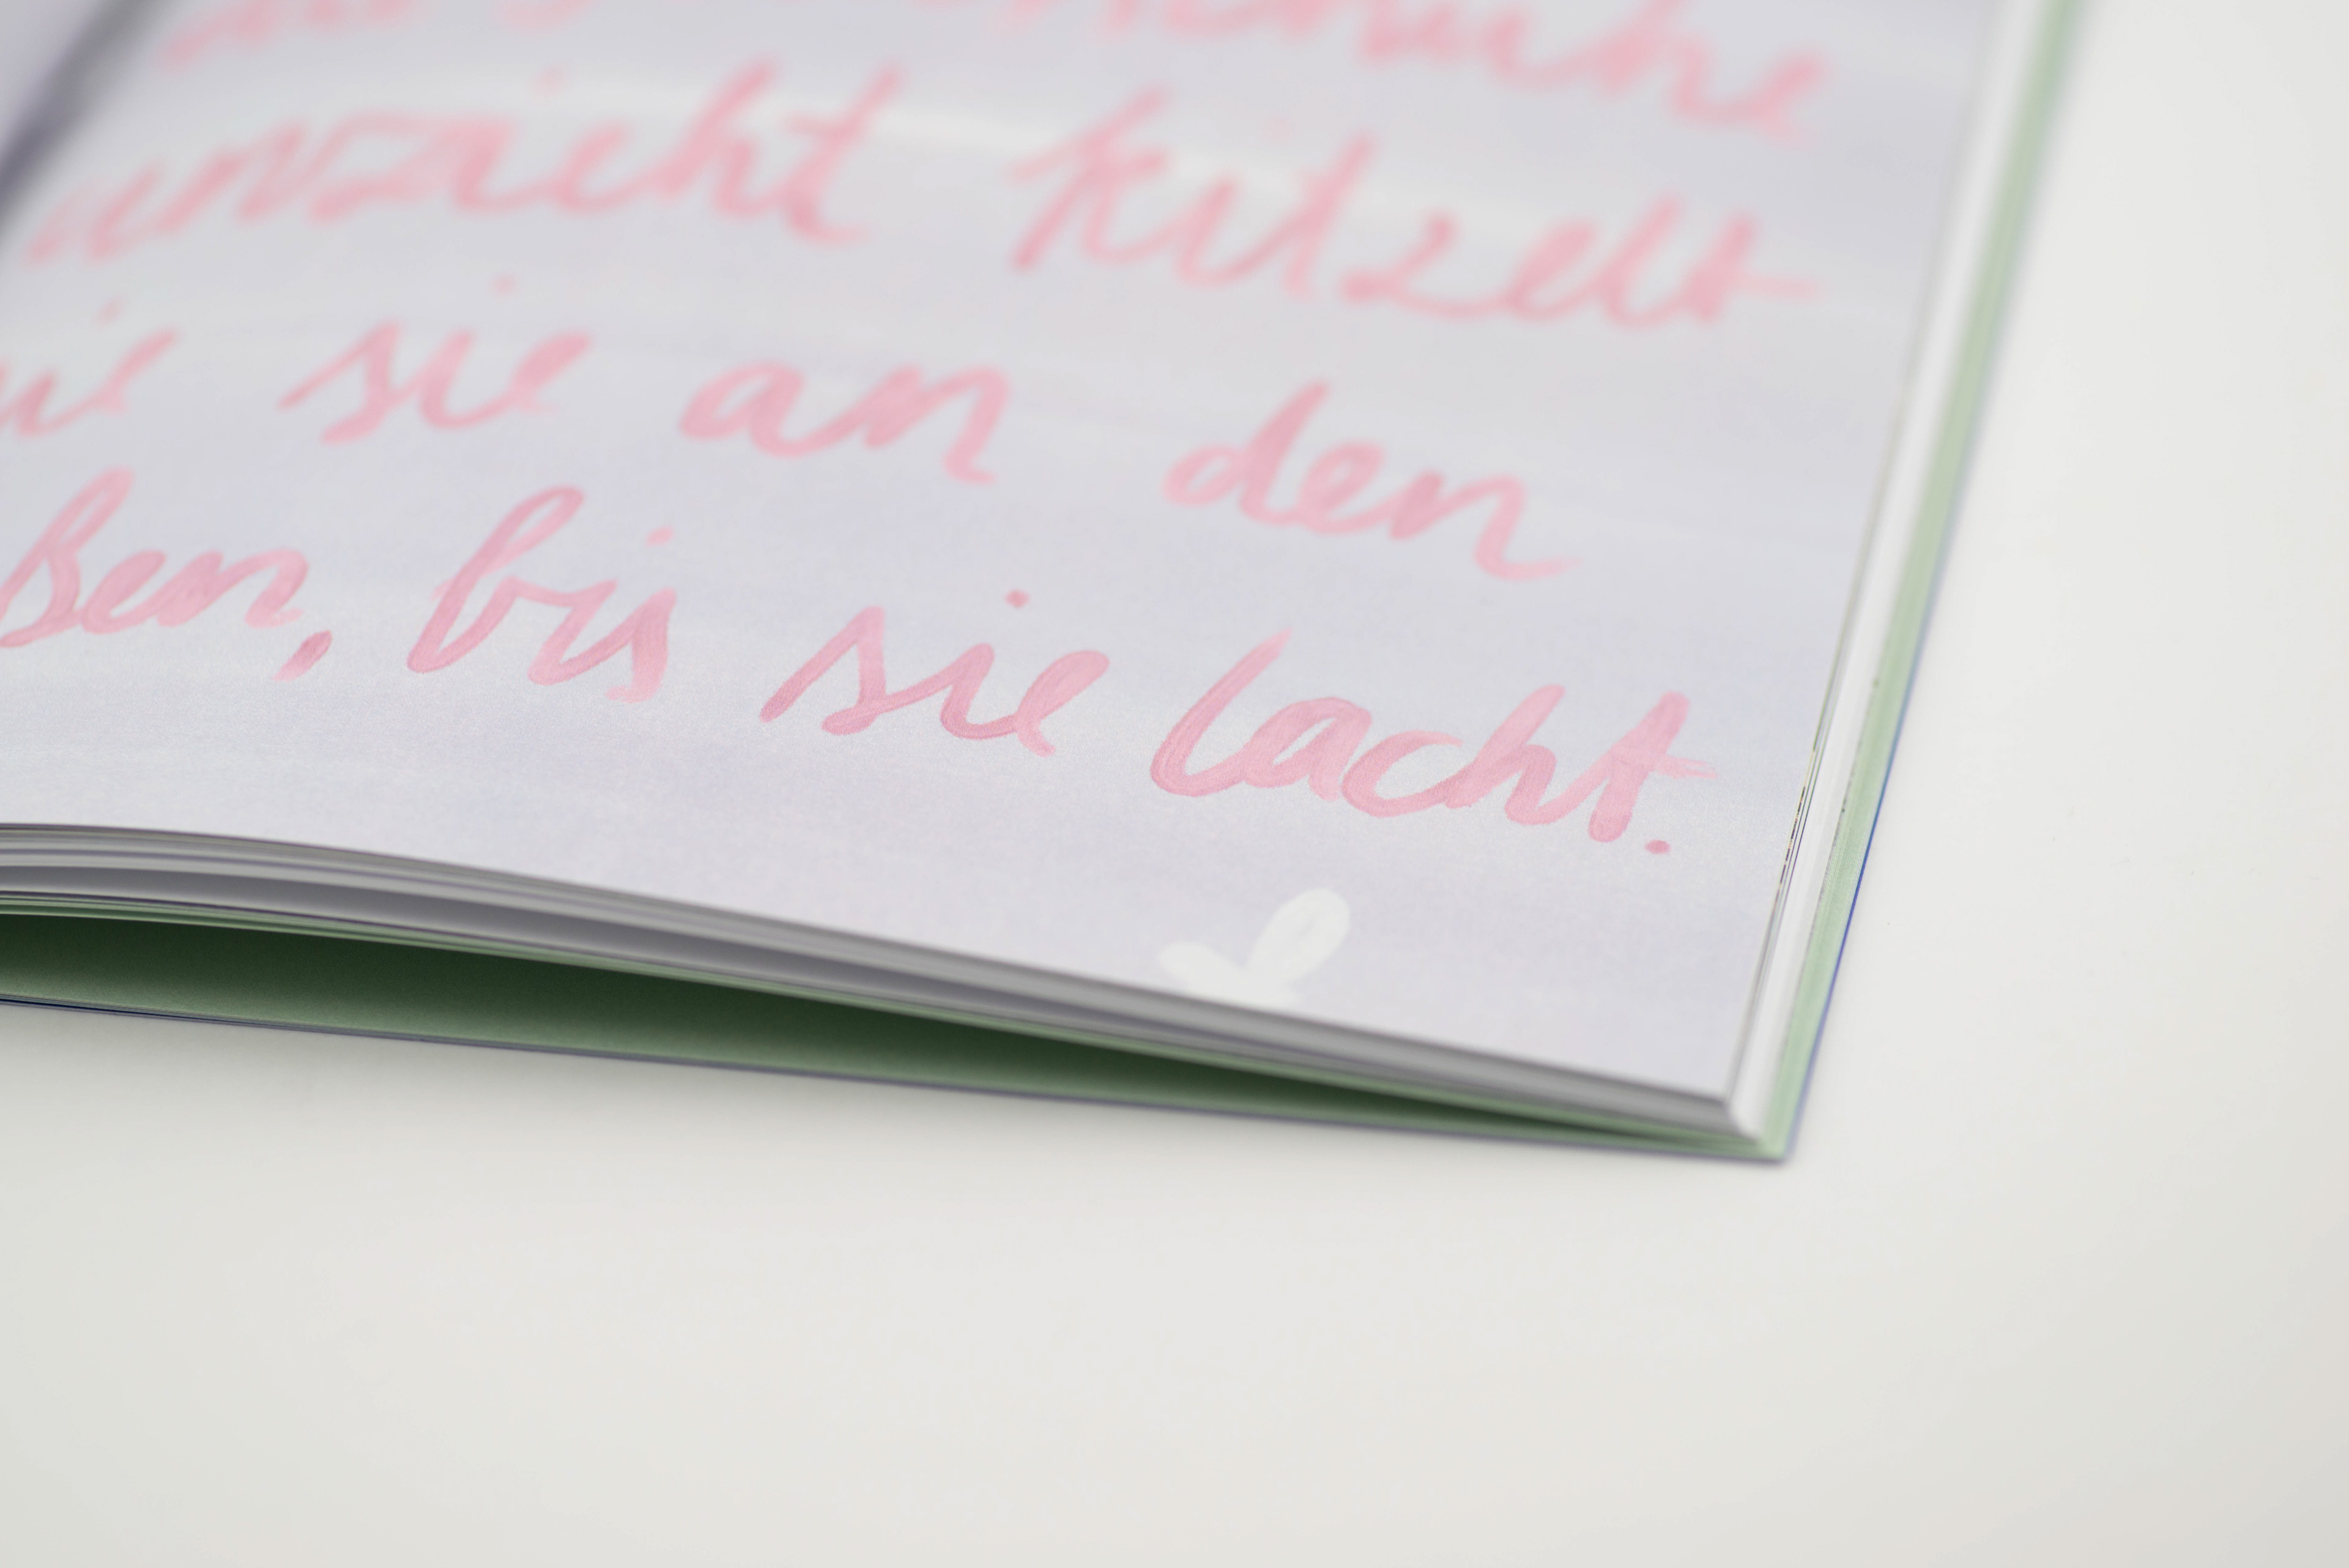 anzieht kitzelt
sie an den
ßen, bis sie lacht.